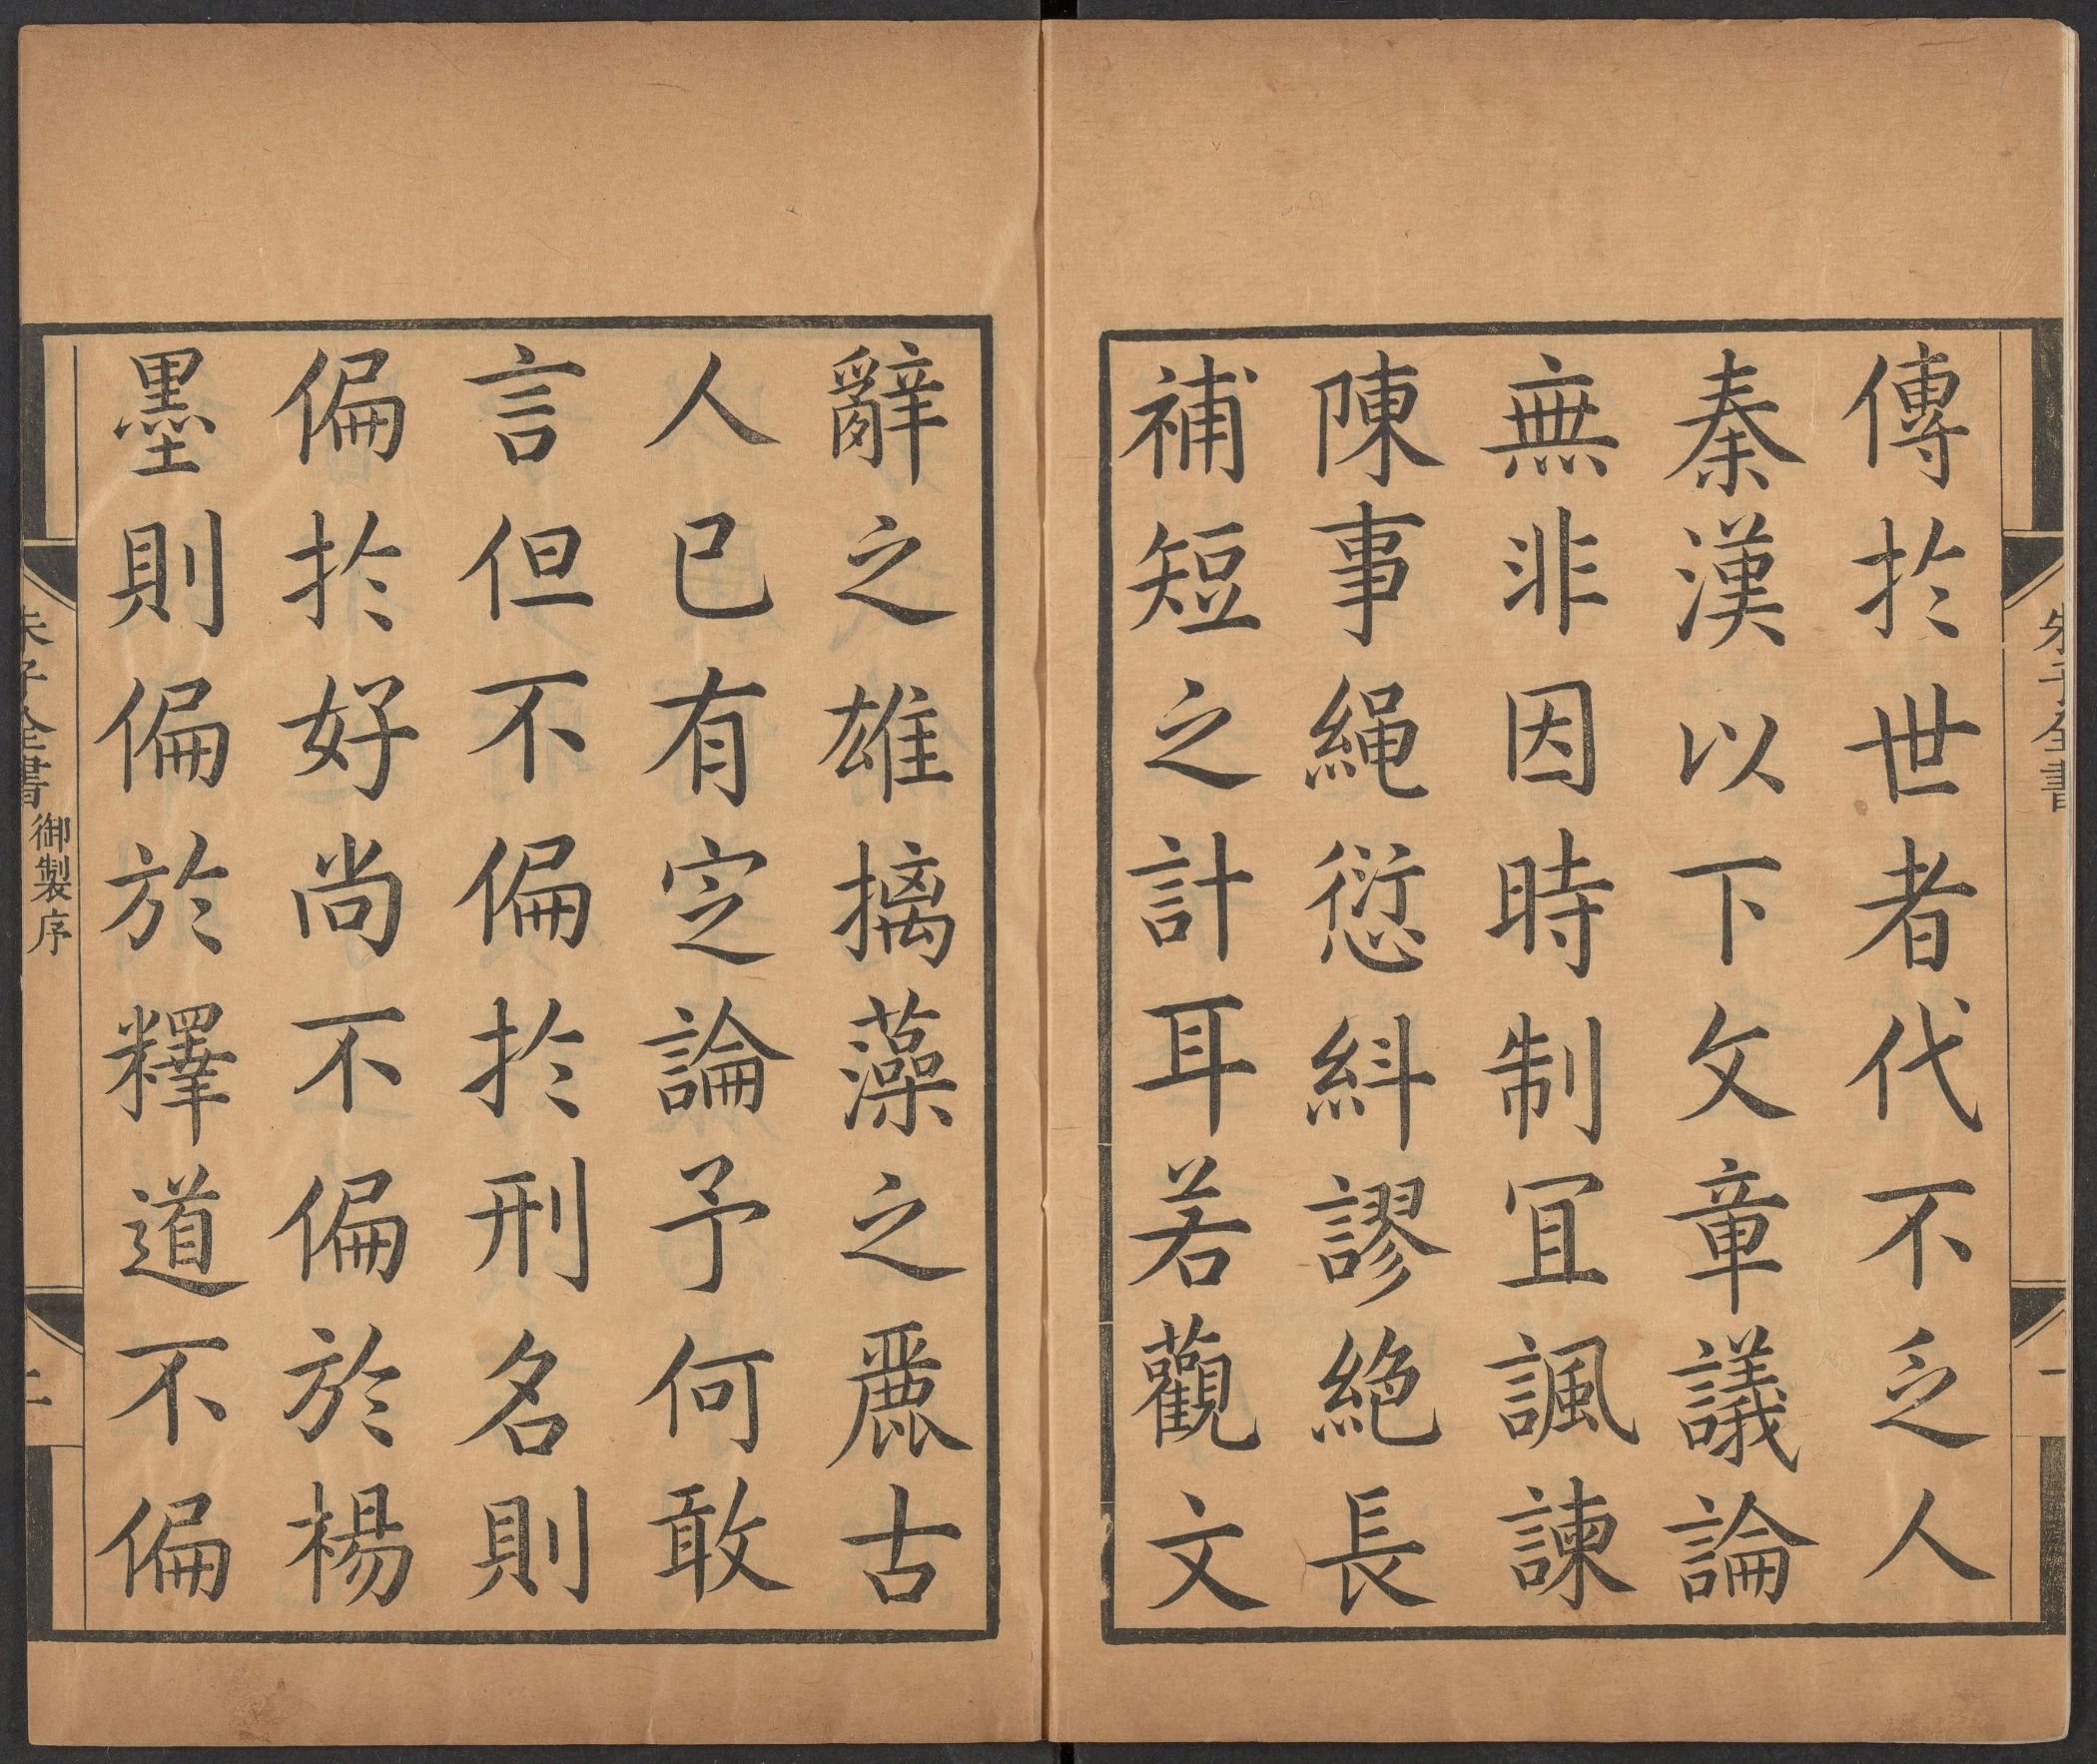 傳於世者代不乏人
秦漢以下文章議論
無非因時制宜諷諫
陳事繩愆糾謬絶長
補短之計耳若觀文
辭之雄摛藻之麗古
人已有定論予何敢
言但不偏於刑名則
偏於好尚不偏於楊
墨則偏於釋道不偏
朱子全書
一
朱子全書 御製序
二